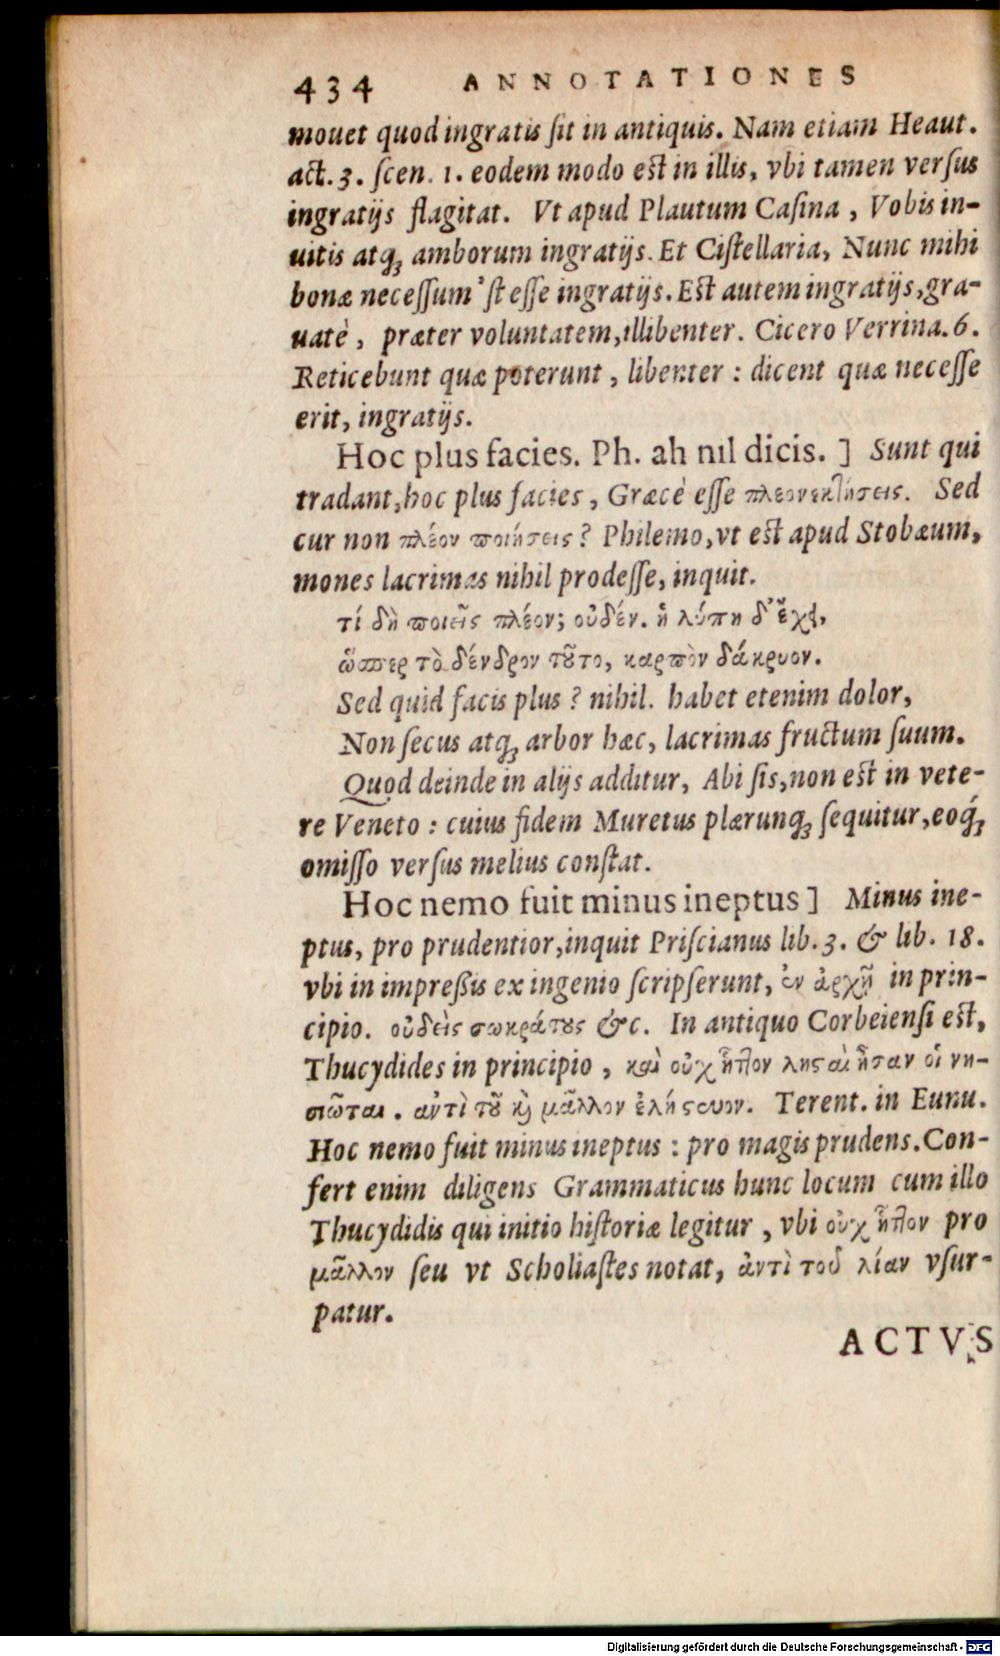 434 ANNOTATIONES
mouet quod ingratis ſit in antiquis. Nam etiam Heaut.
act. 3. ſcen. 1. eodem modo est in illis, vbi tamen verſus
ingratijs flagitat. Vt apud Plautum Caſina, Vobis in-
uitis atq; amborum ingratijs. Et Ciſtellaria, Nunc mihi
bonæ neceſſum'ſt eſſe ingratijs. Est autem ingratijs, gra-
uatè, præter voluntatem, illibenter. Cicero Verrina. 6.
Reticebunt quæ poterunt, libenter : dicent quæ neceſſe
erit, ingratijs.
Hoc plus facies. Ph. ah nil dicis. ] Sunt qui
tradant, hoc plus facies, Græcè eſſe πλεονεκτήσεις. Sed
cur non πλέον ποιήσεις? Philemo, vt est apud Stobæum,
mones lacrimas nihil prodeſſe, inquit.
τί δὴ ποιεῖς πλέον; οὐδέν. ἡ λύπη δ' ἔχει,
ὥσπερ τὸ δένδρον τοῦτο, καρπὸν δάκρυον.
Sed quid facis plus? nihil. habet etenim dolor,
Non ſecus atq; arbor hæc, lacrimas fructum ſuum.
Quod deinde in alijs additur, Abi ſis, non est in vete-
re Veneto : cuius fidem Muretus plærunq; ſequitur, eoq́;
omiſſo verſus melius conſtat.
Hoc nemo fuit minus ineptus ] Minus ine-
ptus, pro prudentior, inquit Priſcianus lib. 3. & lib. 18.
vbi in impreßis ex ingenio ſcripſerunt, ἐν ἀρχῇ in prin-
cipio. οὐδεὶς σωκράτους &c. In antiquo Corbeienſi est,
Thucydides in principio, καὶ οὐχ ἧττον λῃσταὶ ἦσαν οἱ νη-
σιῶται. αντὶ τοῦ καὶ μᾶλλον ἐλήστευον. Terent. in Eunu.
Hoc nemo fuit minus ineptus : pro magis prudens. Con-
fert enim diligens Grammaticus hunc locum cum illo
Thucydidis qui initio hiſtoriæ legitur, vbi οὐχ ἧττον pro
μᾶλλον ſeu vt Scholiaſtes notat, ἀντὶ τοῦ λίαν vſur-
patur.
ACTVS
Digitalisierung gefördert durch die Deutsche Forschungsgemeinschaft - DFG